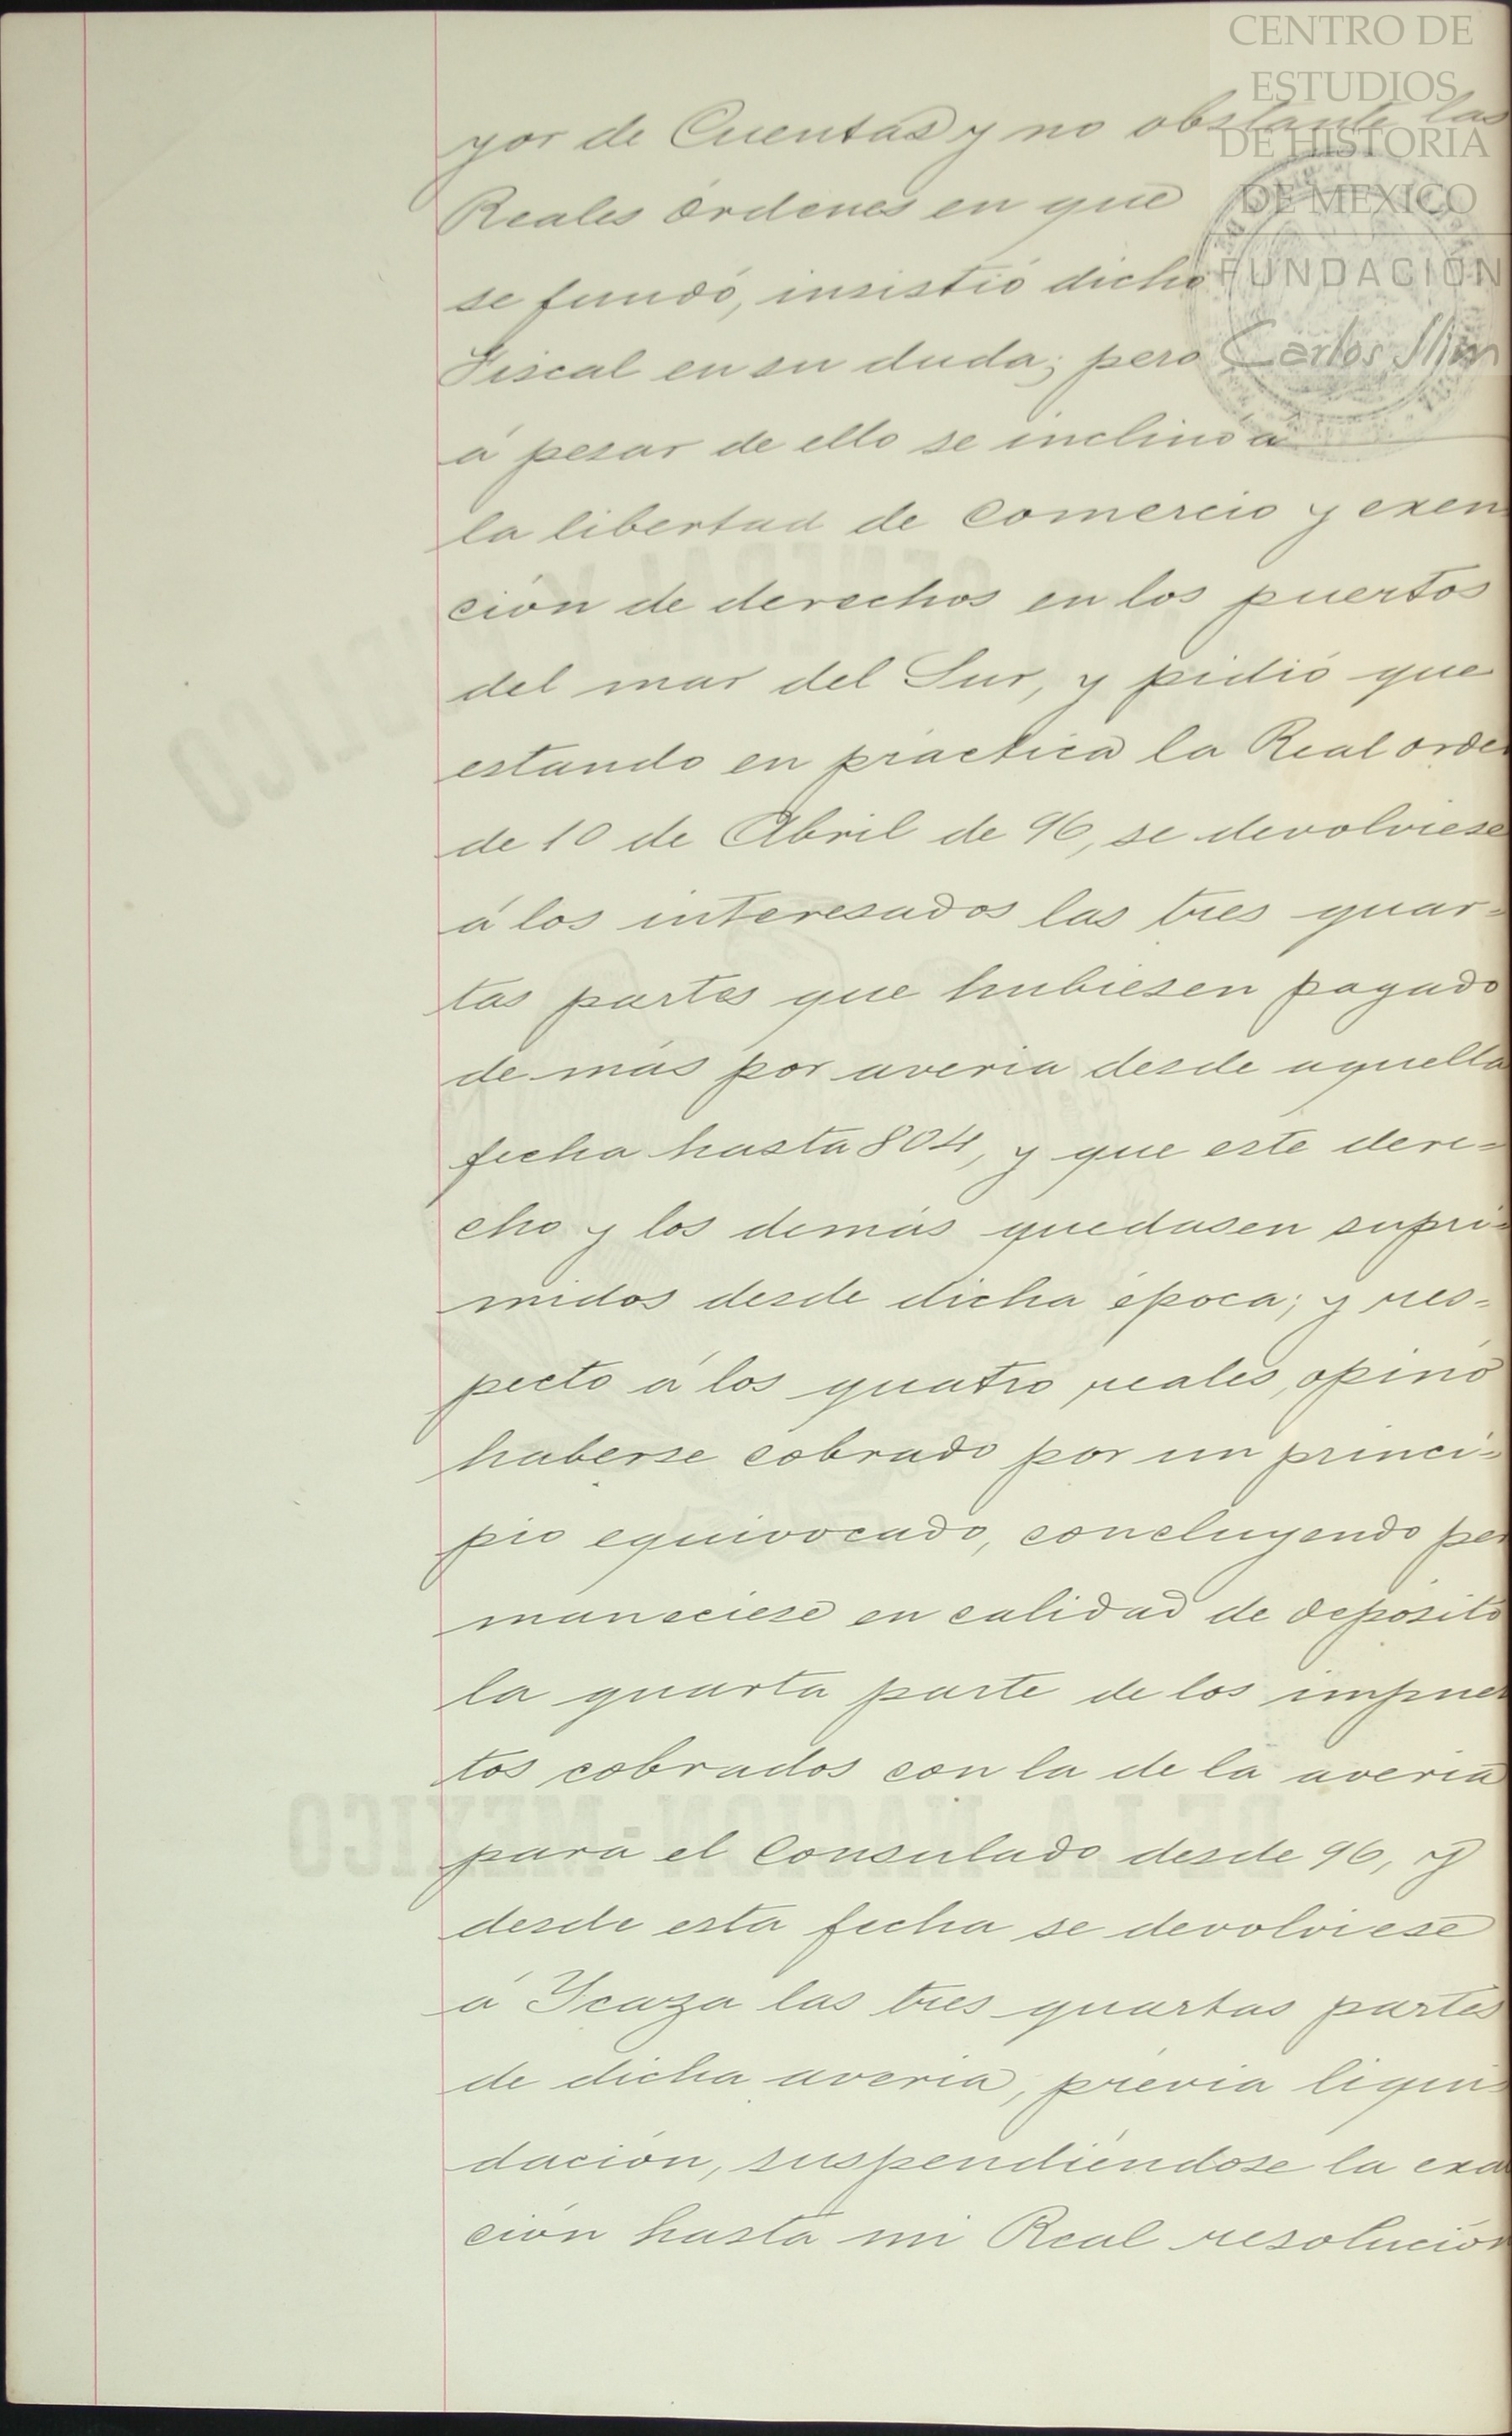 CENTRO DE
ESTUDIOS
DE HISTORIA
DE MEXICO
FUNDACIÓN
Carlos Slim
yor de Cuentas y no obstante las
Reales órdenes en que
se fundó, insistió dicho
Fiscal en su duda; pero
á pesar de ello se inclinó á
la libertad de Comercio y exen
ción de derechos en los puertos
del mar del Sur, y pidió que
estando en práctica la Real orde
de 10 de Abril de 96, se devolviese
á los interesados las tres quar=
tas partes que hubiesen pagado
de más por averia desde aquella
fecha hasta 804, y que este dere=
cho y los demás quedasen supri=
midos desde dicha época; y res=
pecto á los quatro reales, opinó
haberse cobrado por un princi=
pio equivocado, concluyendo per
maneciese en calidad de depósito
la quarta parte de los impues
tos cobrados con la de la averia
para el Consulado desde 96, y
desde esta fecha se devolviese
á Ycaza las tres quartas partes
de dicha averia, prévia liqui=
dación, suspendiéndose la exa
ción hasta mi Real resolución
DE LA NACION-MEXICO